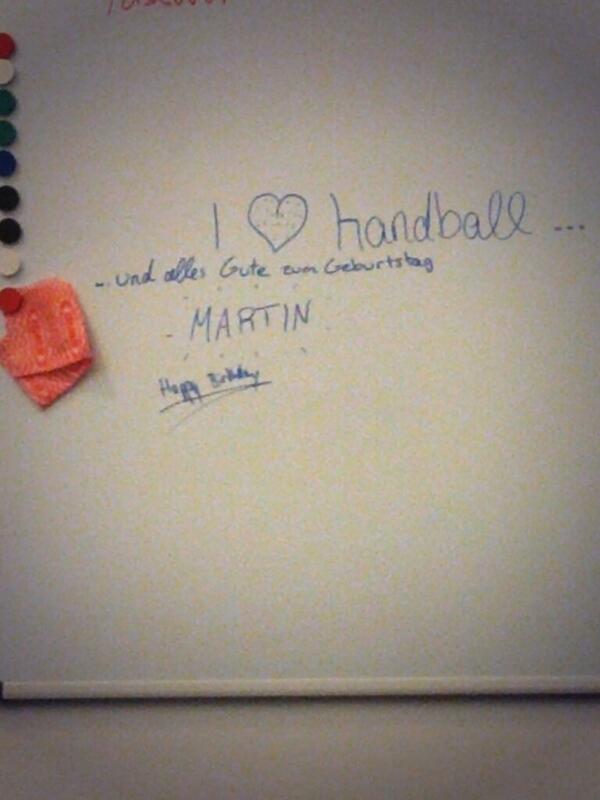 I ♡ handball ...
... und alles Gute zum Geburtstag
- MARTIN
Happy Birthday